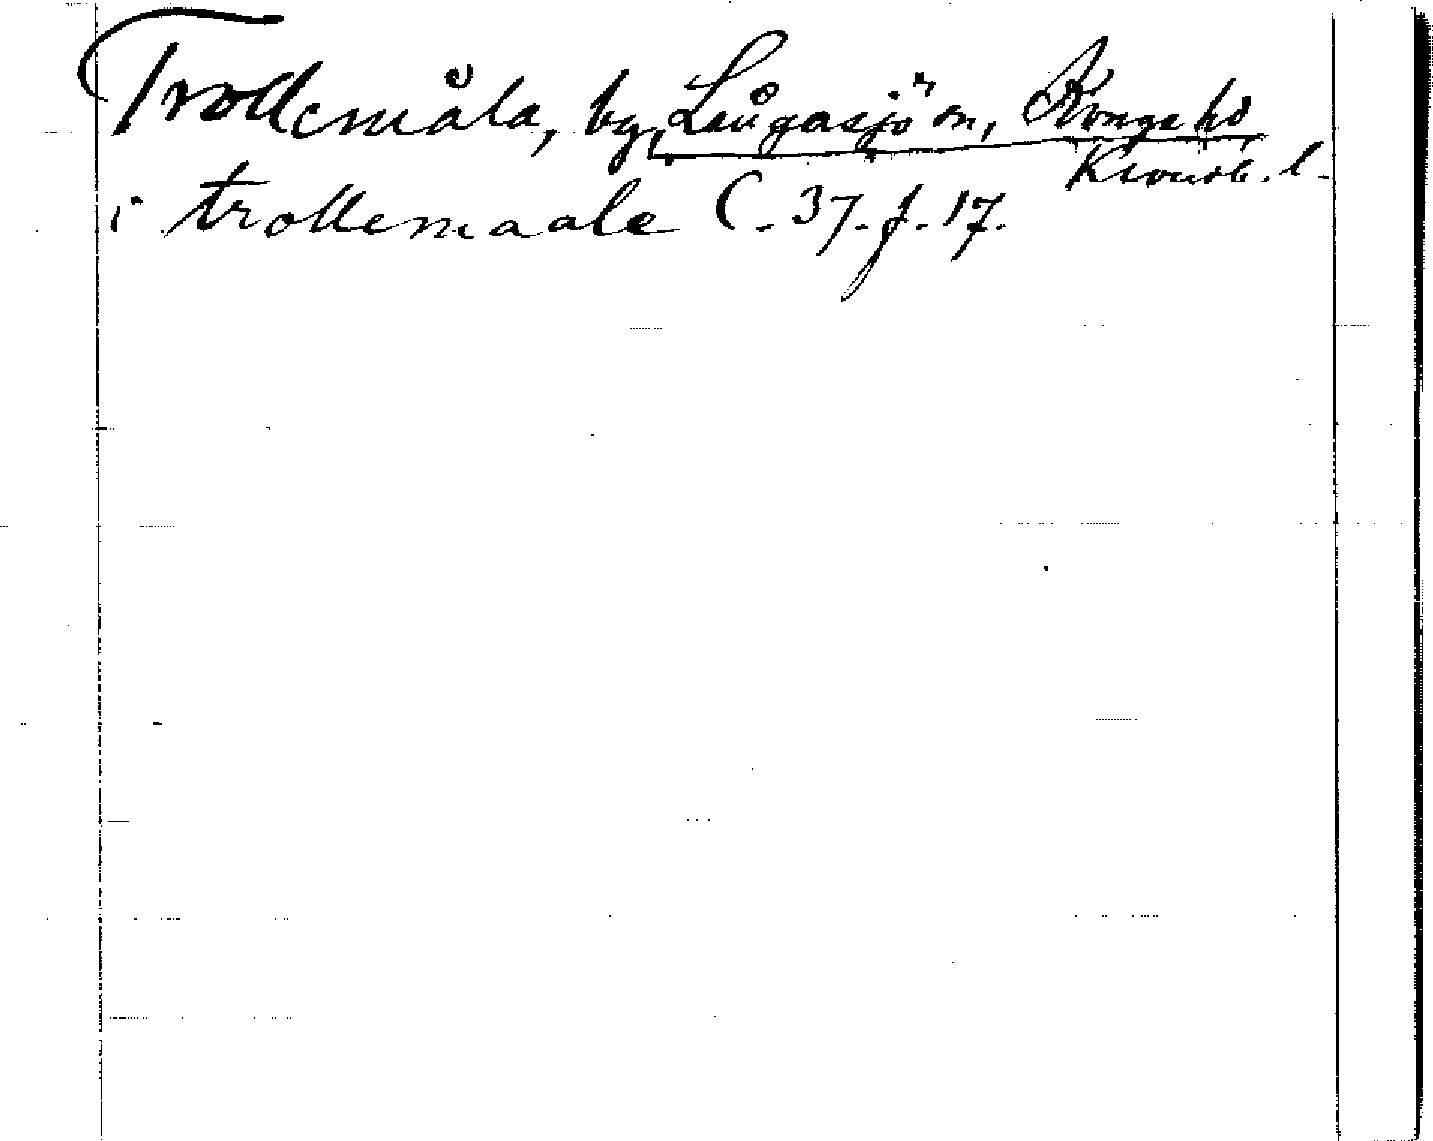 Trollemåla, by, Långasjö sn, Konga hd
Kronob. l.
i trollemaale C. 37. f. 17.